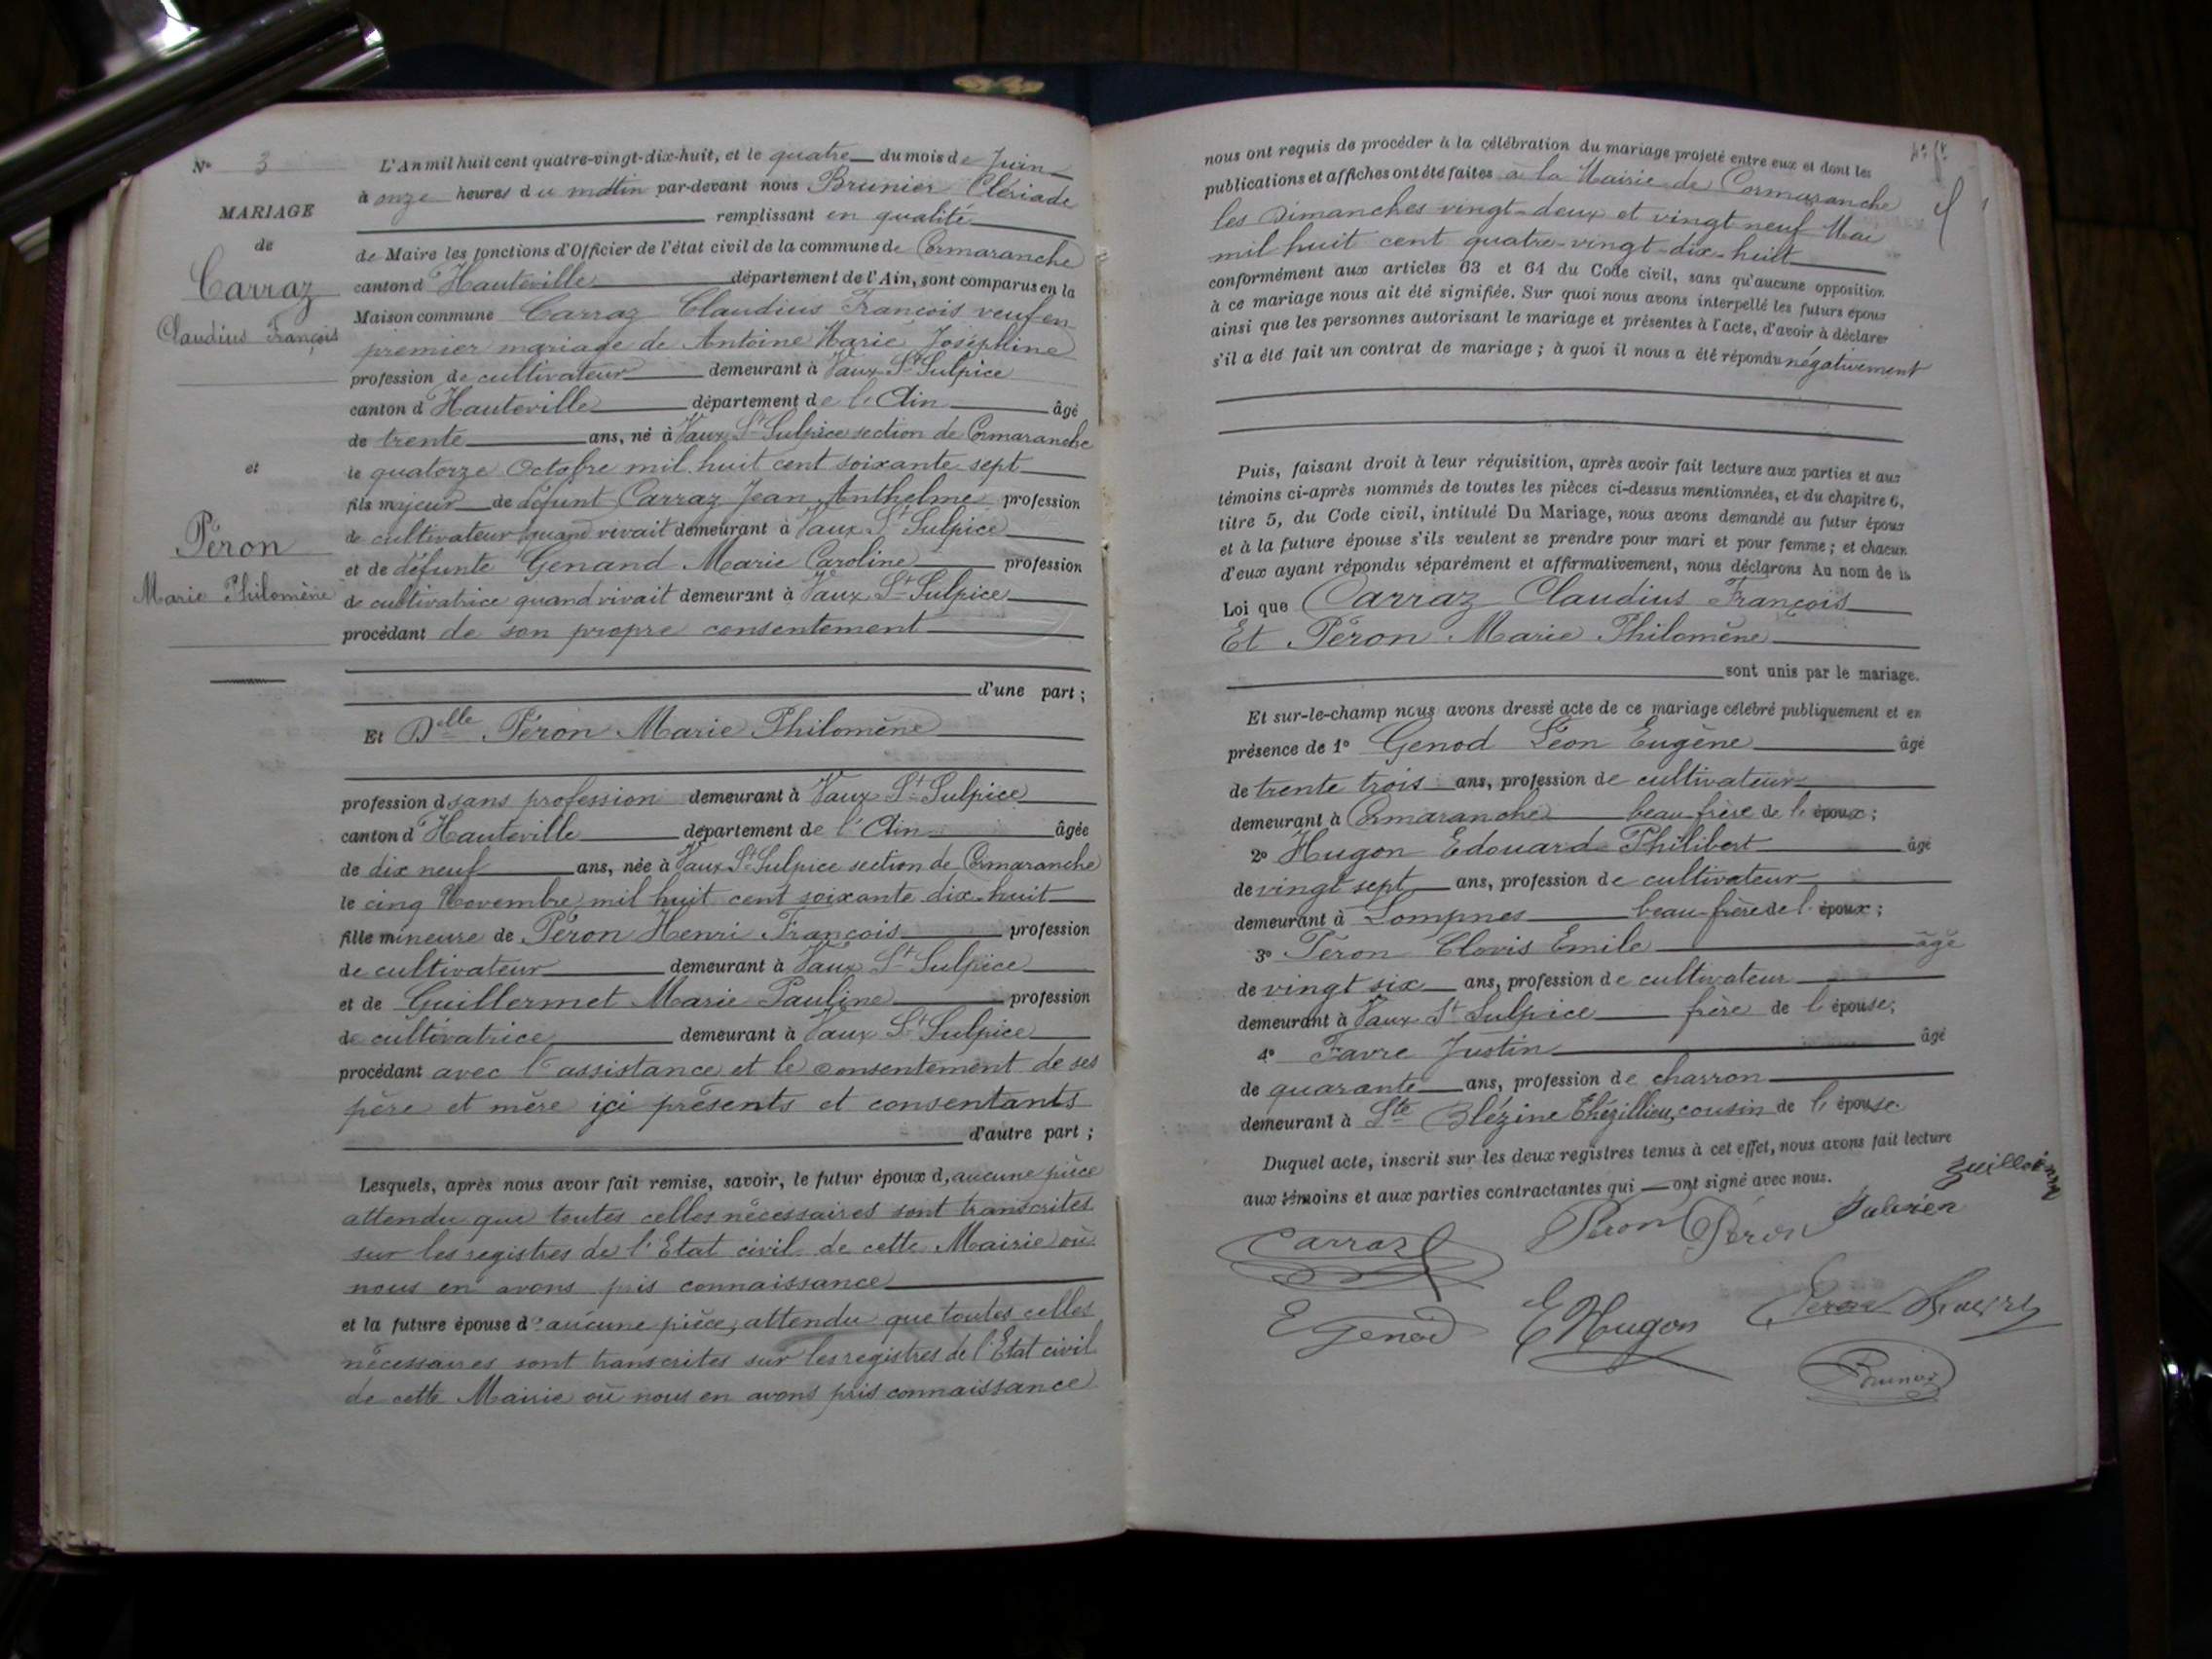 N° 3
MARIAGE
de
Carraz
Claudius François
et
Péron
Marie Philomène
L'An mil huit cent quatre-vingt-dix-huit, et le quatre du mois de Juin
à onze heures du matin par-devant nous Brunier Clériade
remplissant en qualité
de Maire les fonctions d'Officier de l'état civil de la commune de Cormaranche
canton d'Hauteville département de l'Ain, sont comparus en la
Maison commune Carraz Claudius François veuf en
premier mariage de Antoine Marie Joséphine
profession de cultivateur demeurant à Vaux St Sulpice
canton d'Hauteville département de l'Ain âgé
de trente ans, né à Vaux St Sulpice section de Cormaranche
le quatorze Octobre mil huit cent soixante sept
fils majeur de défunt Carraz Jean Anthelme profession
de cultivateur quand vivait demeurant à Vaux St Sulpice
et de défunte Genand Marie Caroline profession
de cultivatrice quand vivait demeurant à Vaux St Sulpice
procédant de son propre consentement
d'une part ;
Et Dlle Péron Marie Philomène
profession d sans profession demeurant à Vaux St Sulpice
canton d'Hauteville département de l'Ain âgée
de dix neuf ans, née à Vaux St Sulpice section de Cormaranche
le cinq Novembre mil huit cent soixante dix-huit
fille mineure de Péron Henri François profession
de cultivateur demeurant à Vaux St Sulpice
et de Guillermet Marie Pauline profession
de cultivatrice demeurant à Vaux St Sulpice
procédant avec l'assistance et le consentement de ses
père et mère ici présents et consentants
d'autre part ;
Lesquels, après nous avoir fait remise, savoir, le futur époux d, aucune pièce
attendu que toutes celles nécessaires sont transcrites
sur les registres de l'Etat civil de cette Mairie où
nous en avons pris connaissance
et la future épouse d'aucune pièce, attendu que toutes celles
nécessaires sont transcrites sur les registres de l'Etat civil
de cette Mairie où nous en avons pris connaissance
nous ont requis de procéder à la célébration du mariage projeté entre eux et dont les
publications et affiches ont été faites à la Mairie de Cormaranche
les Dimanches vingt-deux et vingt neuf Mai
mil huit cent quatre-vingt-dix-huit
conformément aux articles 63 et 64 du Code civil, sans qu'aucune opposition
à ce mariage nous ait été signifiée. Sur quoi nous avons interpellé les futurs époux
ainsi que les personnes autorisant le mariage et présentes à l'acte, d'avoir à déclarer
s'il a été fait un contrat de mariage ; à quoi il nous a été répondu négativement
Puis, faisant droit à leur réquisition, après avoir fait lecture aux parties et aux
témoins ci-après nommés de toutes les pièces ci-dessus mentionnées, et du chapitre 6,
titre 5, du Code civil, intitulé Du Mariage, nous avons demandé au futur époux
et à la future épouse s'ils veulent se prendre pour mari et pour femme ; et chacun
d'eux ayant répondu séparément et affirmativement, nous déclarons Au nom de la
Loi que Carraz Claudius François
Et Péron Marie Philomène
sont unis par le mariage.
Et sur-le-champ nous avons dressé acte de ce mariage célébré publiquement et en
présence de 1° Genod Léon Eugène âgé
de trente trois ans, profession de cultivateur
demeurant à Cormaranche beau-frère de l'époux ;
2° Hugon Edouard Philibert âgé
de vingt sept ans, profession de cultivateur
demeurant à Lompnes beau-frère de l'époux ;
3° Péron Clovis Emile âgé
de vingt six ans, profession de cultivateur
demeurant à Vaux St Sulpice frère de l'épouse,
4° Favre Justin âgé
de quarante ans, profession de charron
demeurant à Ste Blézine Thézillieu, cousin de l'épouse.
Duquel acte, inscrit sur les deux registres tenus à cet effet, nous avons fait lecture
aux témoins et aux parties contractantes qui ont signé avec nous.
Carraz Péron Péron
E Genod E Hugon Péron
Brunier